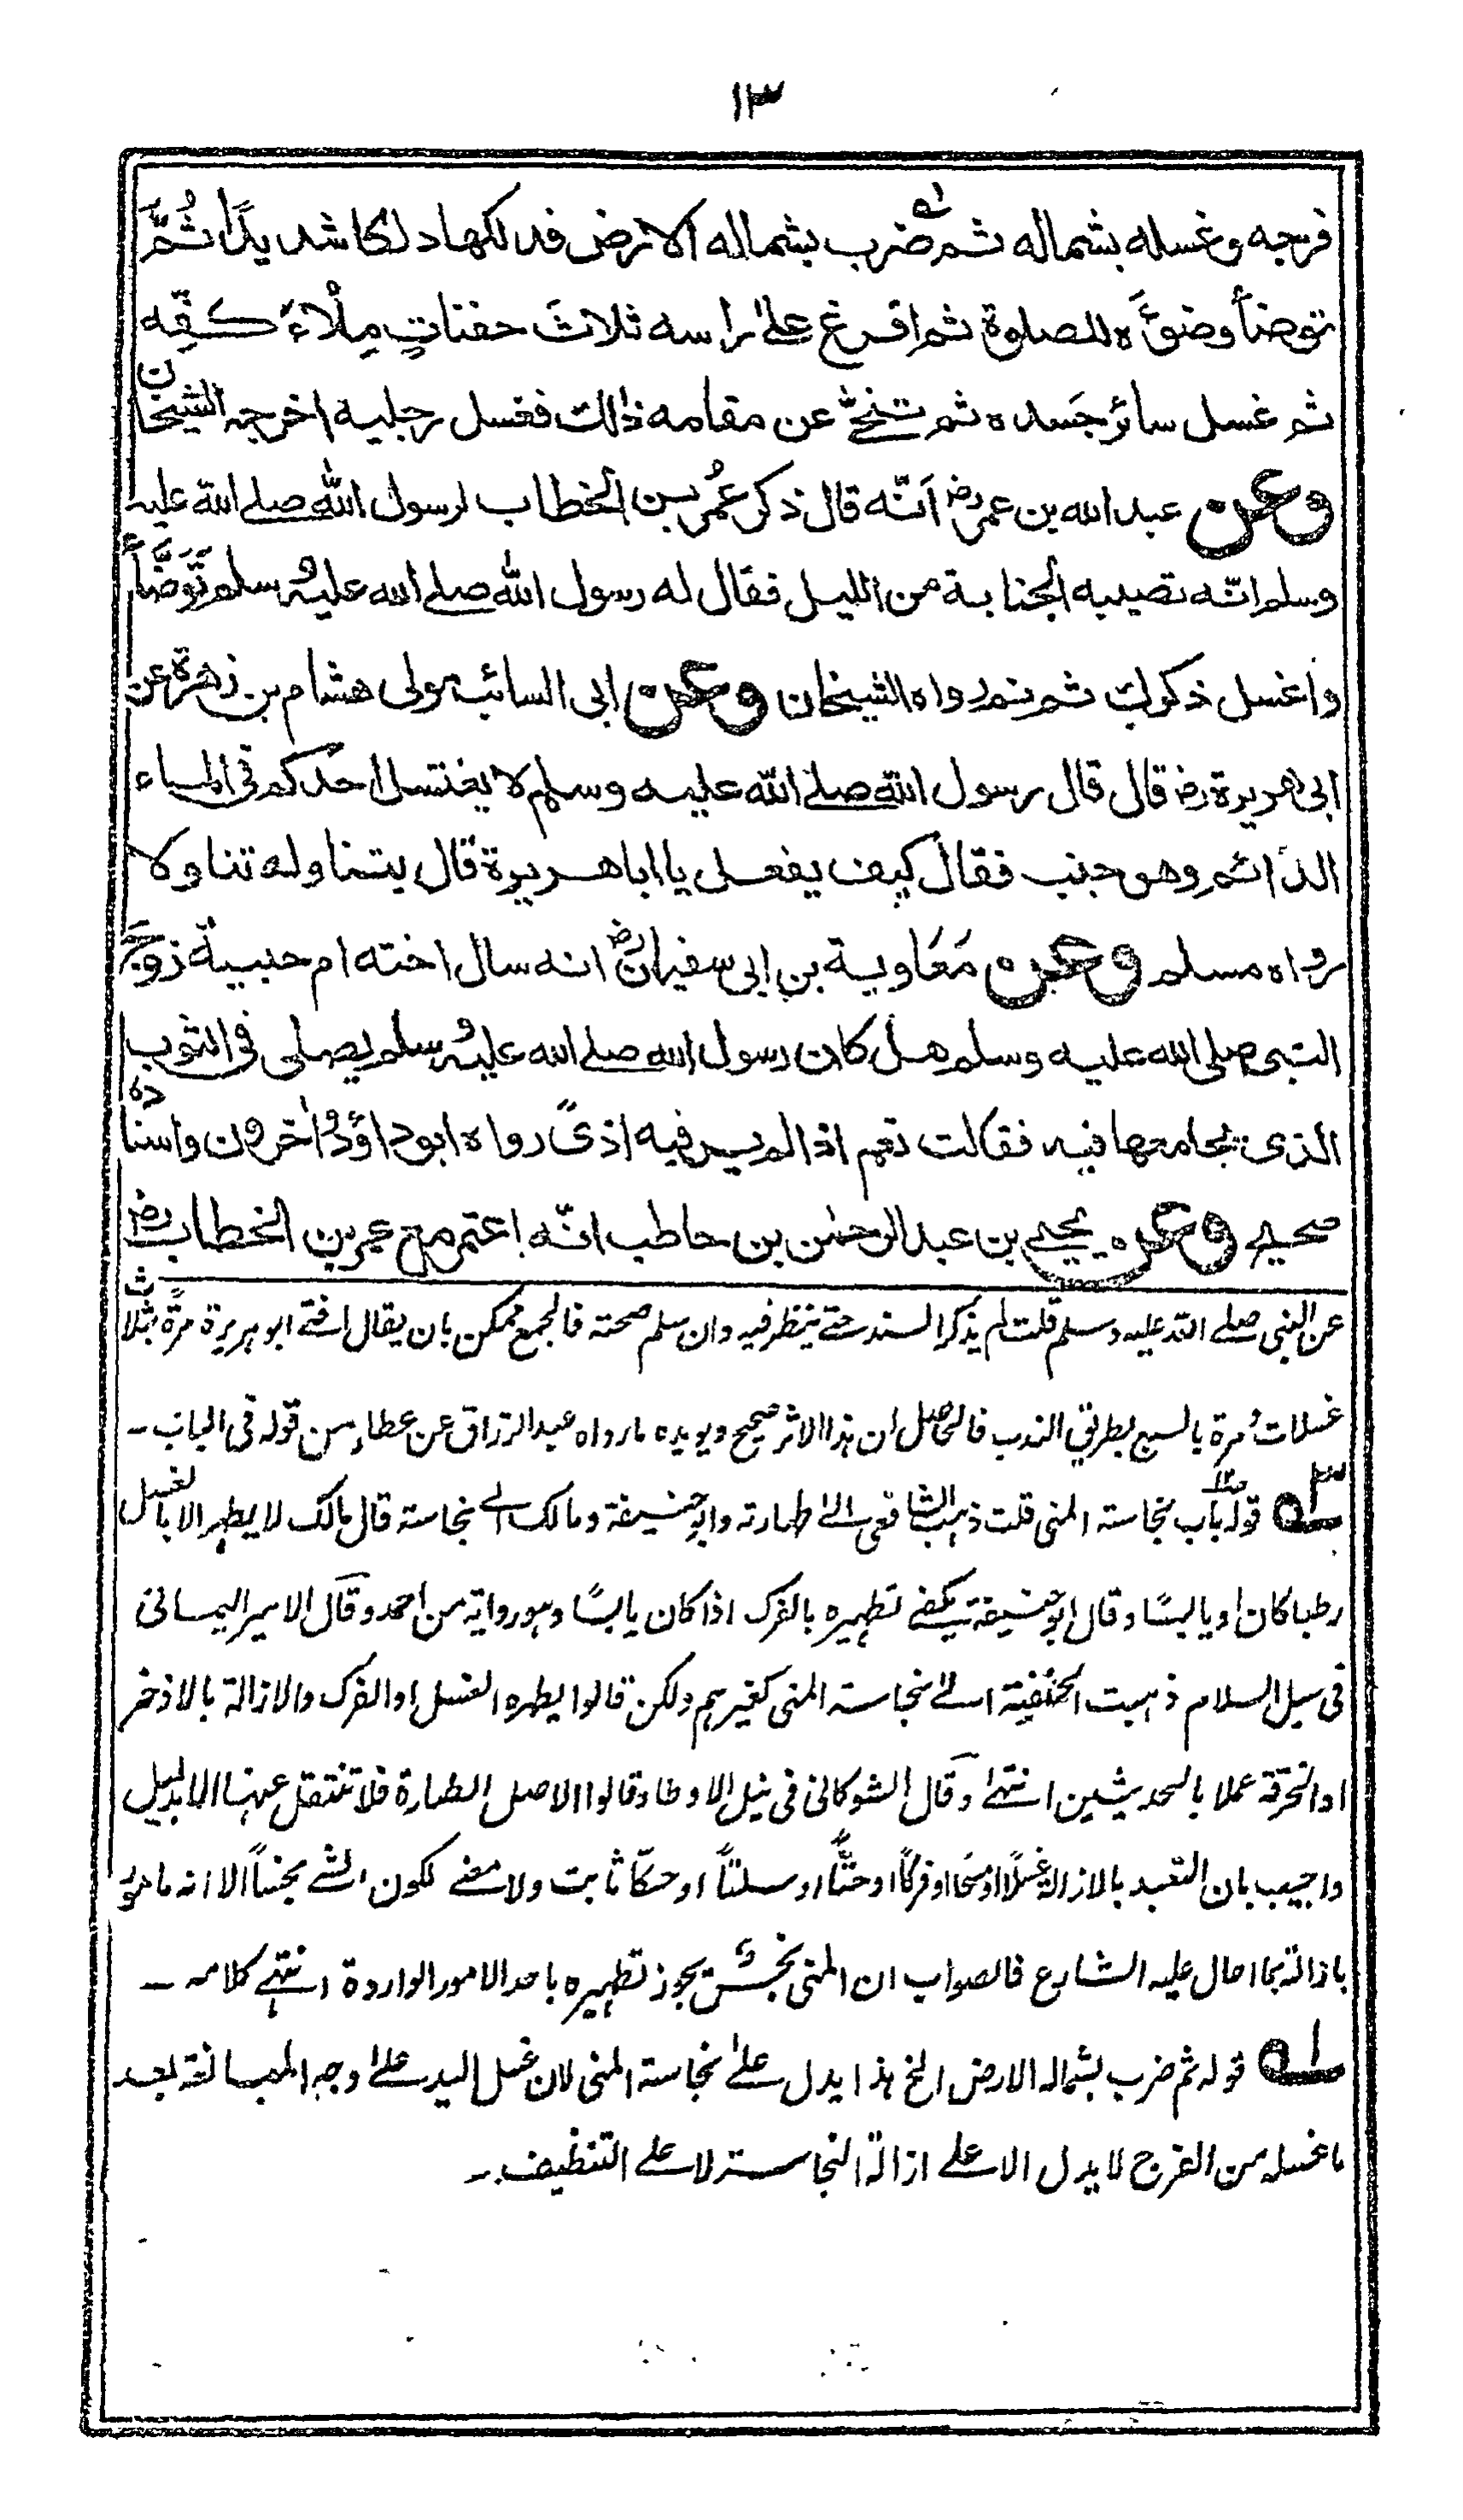 ۱۳
فرجه وغسله بشماله ثم ضرب بشماله الارض فدلكها دلكا شديدًا ثُمَّ
توضأ وضوٓءَه للصلوة ثم افرغ علىٰ راسه ثلاثَ حفناتٍ مِلْاءَ كفّهِ
ثم غسل سائر جَسده ثم تنحّٰى عن مقامه ذٰلك فغسل رجليه اخرجه الشيخان
وعن عبد الله بن عمر رض اَنّه قال ذكر عُمرُ بن الخطاب لرسول الله صلى الله عليه
وسلم انّه تصيبه الجنابة من الليل فقال له رسول الله صلى الله عليه وسلم تَوَضَّأْ
واغسل ذكرك ثم نم رواه الشيخان وعن ابى السائب مولى هشام بن زهرة عن
ابى هريرة رض قال قال رسول الله صلى الله عليه وسلم لا يغتسل احدكم فى الماء
الدّائم وهو جنب فقال كيف يفعل يا ابا هريرة قال يتناوله تناولا
رواه مسلم وعن مَعَاوية بن ابى سفيان رض انه سال اخته ام حبيبة زوجَ
النبى صلى الله عليه وسلم هل كان رسول الله صلى الله عليه وسلم يصلى فى الثوب
الذى يجامعها فيه فقالت نعم اذا لم ير فيه اذىً رواه ابو داؤد واٰخرون واسناده
صحيح وعن يحيى بن عبد الرحمٰن بن حاطب انّه اعتمر مع عمر بن الخطاب رض
عن النبى صلى الله عليه وسلم قلت لم يذكر السند حتى ينظر فيه وان سلم صحته فالجمع ممكن بان يقال افتى ابو هريرة مرةً بثلاث
غسلات ومرة بالسبع بطريق الندب فالحاصل ان هذا الاثر صحيح ويويده ما رواه عبد الرزاق عن عطاء من قوله فى الباب ـ
۳ه قوله باب نجاسة المنى قلت ذهب الشافعى الى طهارته وابو حنيفة ومالك الى نجاسته قال مالك لا يطهر الا بالغسل
رطبا كان او يابسًا وقال ابو حنيفة يكفى تطهيره بالفرك اذا كان يابسًا وهو رواية من احمد وقال الامير اليمانى
فى سبل السلام ذهبت الحنفية الى نجاسة المنى كغيرهم ولكن قالوا يطهره الغسل او الفرك والازالة بالاذخر
او الخرقة عملا بالحديثين انتهى وقال الشوكانى فى نيل الاوطار وقالوا الاصل الطهارة فلا تنتقل عنها الا بدليل
واجيب بان التعبد بالازالة غسلًا او مسحًا او فركًا او حتًّا او سلتًا او حكًّا ثابت ولا معنى لكون الشى نجسًا الا انه مامور
بازالته بما احال عليه الشارع فالصواب ان المنى نجسٌ يجوز تطهيره باحد الامور الواردة انتهى كلامه ـ
۱ه قوله ثم ضرب بشماله الارض الخ هذا يدل علىٰ نجاسة المنى لان غسل اليد علىٰ وجه المبالغة بعد
ما غسله من الفرج لا يدل الا على ازالة النجاسة لا على التنظيف ـ